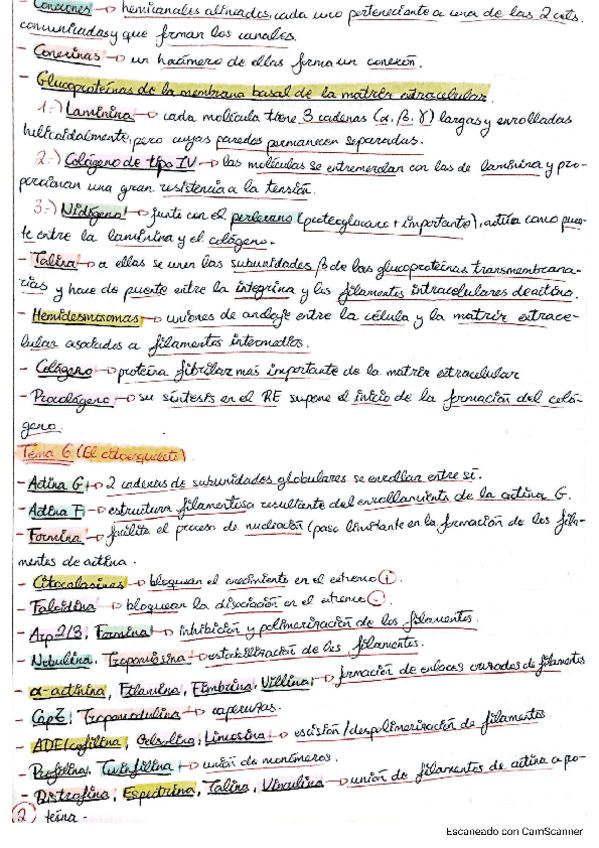 - Conexones → hemicanales alineados, cada uno perteneciente a una de las 2 cels.
comunicadas y que forman los canales.
- Conexinas → un hexámero de ellas forma un conexón.
- Glucoproteínas de la membrana basal de la matriz extracelular.
1.-) Laminina → cada molécula tiene 3 cadenas (α, β, γ) largas y enrolladas
helicoidalmente, pero cuyas paredes permanecen separadas.
2.-) Colágeno de tipo IV → las moléculas se entremezclan con las de laminina y pro-
porcionan una gran resistencia a la tensión.
3.-) Nidógeno → junto con el perlecano (proteoglucano + importante), actúa como puen-
te entre la laminina y el colágeno.
- Talina → a ellas se unen las subunidades β de las glucoproteínas transmembrana-
rias y hace de puente entre la integrina y los filamentos intracelulares de actina.
- Hemidesmosomas → uniones de anclaje entre la célula y la matriz extrace-
lular asociados a filamentos intermedios.
- Colágeno → proteína fibrilar más importante de la matriz extracelular
- Procolágeno → su síntesis en el RE supone el inicio de la formación del colá-
geno.
Tema 6 (El citoesqueleto)
- Actina G → 2 cadenas de subunidades globulares se enrollan entre sí.
- Actina F → estructura filamentosa resultante del enrollamiento de la actina G.
- Formina → facilita el proceso de nucleación (paso limitante en la formación de los fila-
mentos de actina.
- Citocalasinas → bloquean el crecimiento en el extremo +.
- Faloidina → bloquean la disociación en el extremo -.
- Arp2/3, Formina → inhibición y polimerización de los filamentos.
- Nebulina, Tropomiosina → estabilización de los filamentos.
- α-actinina, Filamina, Fimbrina, Villina → formación de enlaces cruzados de filamentos
- CapZ, Tropomodulina → caperuzas.
- ADF/cofilina, Gelsolina, → escisión/despolimerización de filamentos
- Profilina, Twinfilina → unión de monómeros.
- Distrofina, Espectrina, Talina, Vinculina → unión de filamentos de actina a pro-
2 teína.
Escaneado con CamScanner